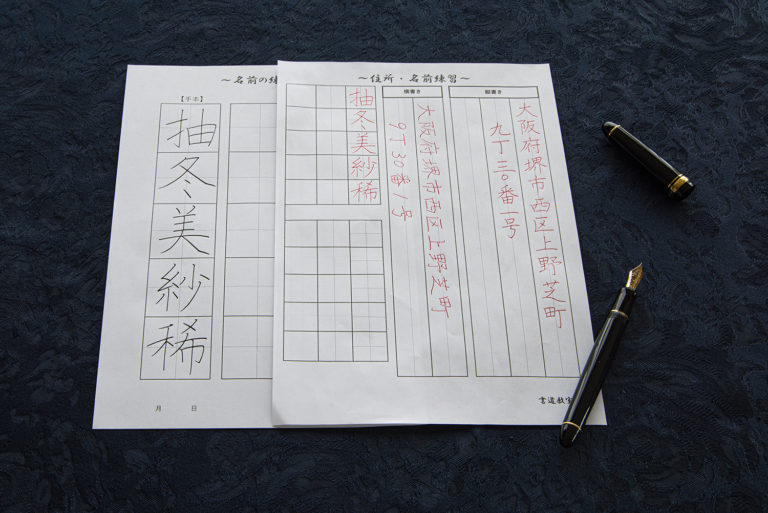 〜名前の練
【手本】
抽冬美紗稀
月 日
〜住所・名前練習〜
縦書き
大阪府堺市西区上野芝町
九丁三〇番一号
横書き
大阪府堺市西区上野芝町
9丁30番1号
抽冬美紗稀
書道教室